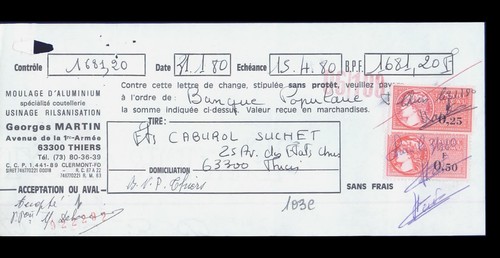 Contrôle 1681,20 Date 31.1.80 Echéance 15.4.80 B.P.F. 1681,20
Contre cette lettre de change, stipulée sans protêt, veuillez pay
à l'ordre de: Banque Populaire
la somme indiquée ci-dessus. Valeur reçue en marchandises.
MOULAGE D'ALUMINIUM
spécialité coutellerie
USINAGE RILSANISATION
Georges MARTIN
Avenue de la 1re-Armée
63300 THIERS
Tél. (73) 80-36-39
C.C.P. 1.441-89 CLERMONT-FD
TIRE:
Ets CABUROL SUCHET
25 Av. des Etats Unis
63300 Thiers
DOMICILIATION
B.N.P. Thiers
ACCEPTATION OU AVAL
SANS FRAIS
Accepté
103e
0,25
0,50